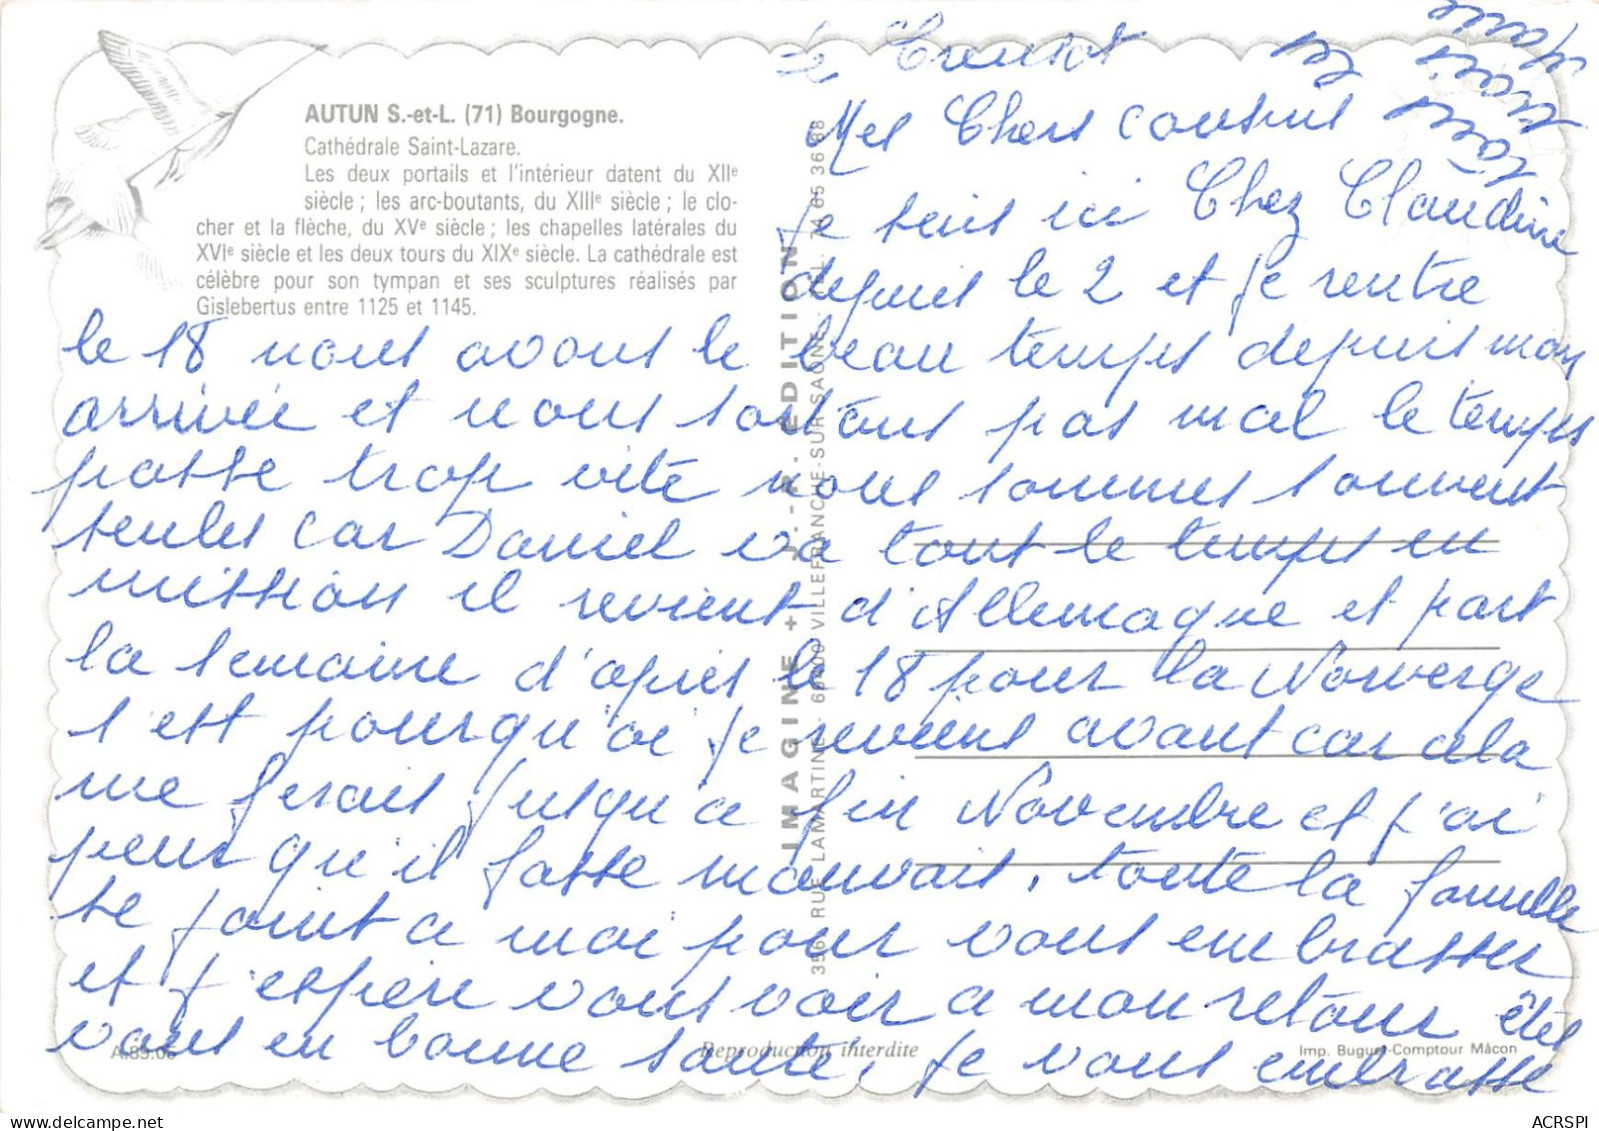 AUTUN S.-et-L. (71) Bourgogne.
Cathédrale Saint-Lazare.
Les deux portails et l'intérieur datent du XIIe
siècle ; les arc-boutants, du XIIIe siècle ; le clo-
cher et la flèche, du XVe siècle ; les chapelles latérales du
XVIe siècle et les deux tours du XIXe siècle. La cathédrale est
célèbre pour son tympan et ses sculptures réalisés par
Gislebertus entre 1125 et 1145.
le Creusot
Mes Chers cousins
Je suis ici Chez Claudine
depuis le 2 et je rentre
le 18 nous avons le beau temps depuis mon
arrivée et nous sortons pas mal le temps
passe trop vite nous sommes souvent
seules car Daniel va tout le temps en
mission il revient d'Allemagne et part
la semaine d'après le 18 pour la Norverge
s'est pourqu'oi je reviens avant car cela
me ferait jusqu'a fin Novembre et j'ai
peur qu'il fasse mauvais. toute la famille
se joint a moi pour vous embrasser
et j'espère vous voir a mon retour êtes
vous en bonne santé, je vous embrasse
IMAGINE + J.-P. EDITION
356, RUE LAMARTINE - 69400 VILLEFRANCHE-SUR-SAONE - TEL. 74 65 36 88
Reproduction interdite
Imp. Buguet-Comptour Mâcon
ACRSPI